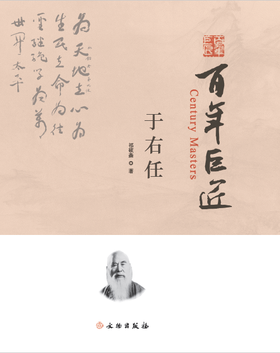 为天地立心为
生民立命为往
圣继绝学为万
世开太平
百年巨匠
Century Masters
于右任
著
文物出版社